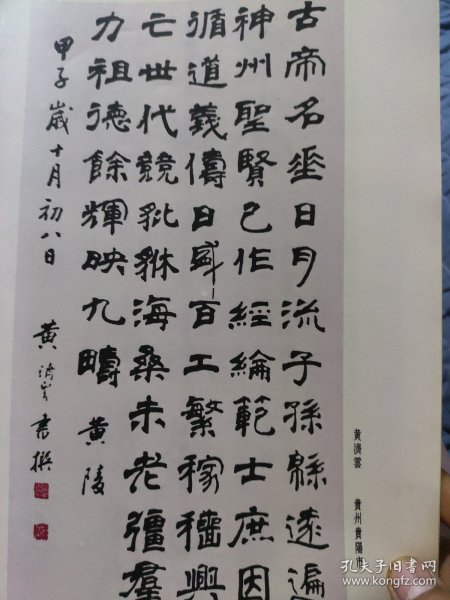 古帝名垂日月流子孫緜遠遍
神州聖賢已作經綸範士庶因
循道義儔日盛百工繁稼穡興
亡世代競貔貅海桑未老彊羣
力祖德餘輝映九疇 黄陵
甲子歲十月初八日 黄濟雲書撰
黄濟雲 貴州貴陽市
孔夫子旧书网